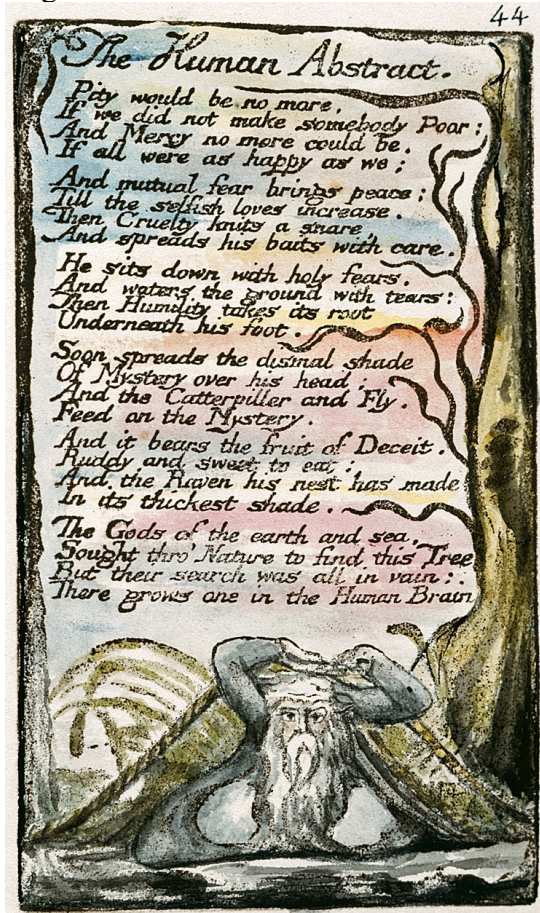 44
The Human Abstract.
Pity would be no more,
If we did not make somebody Poor:
And Mercy no more could be,
If all were as happy as we;
And mutual fear brings peace:
Till the selfish loves increase.
Then Cruelty knits a snare,
And spreads his baits with care.
He sits down with holy fears,
And waters the ground with tears:
Then Humility takes its root
Underneath his foot.
Soon spreads the dismal shade
Of Mystery over his head;
And the Catterpiller and Fly,
Feed on the Mystery.
And it bears the fruit of Deceit,
Ruddy and sweet to eat;
And the Raven his nest has made
In its thickest shade.
The Gods of the earth and sea,
Sought thro' Nature to find this Tree
But their search was all in vain:
There grows one in the Human Brain